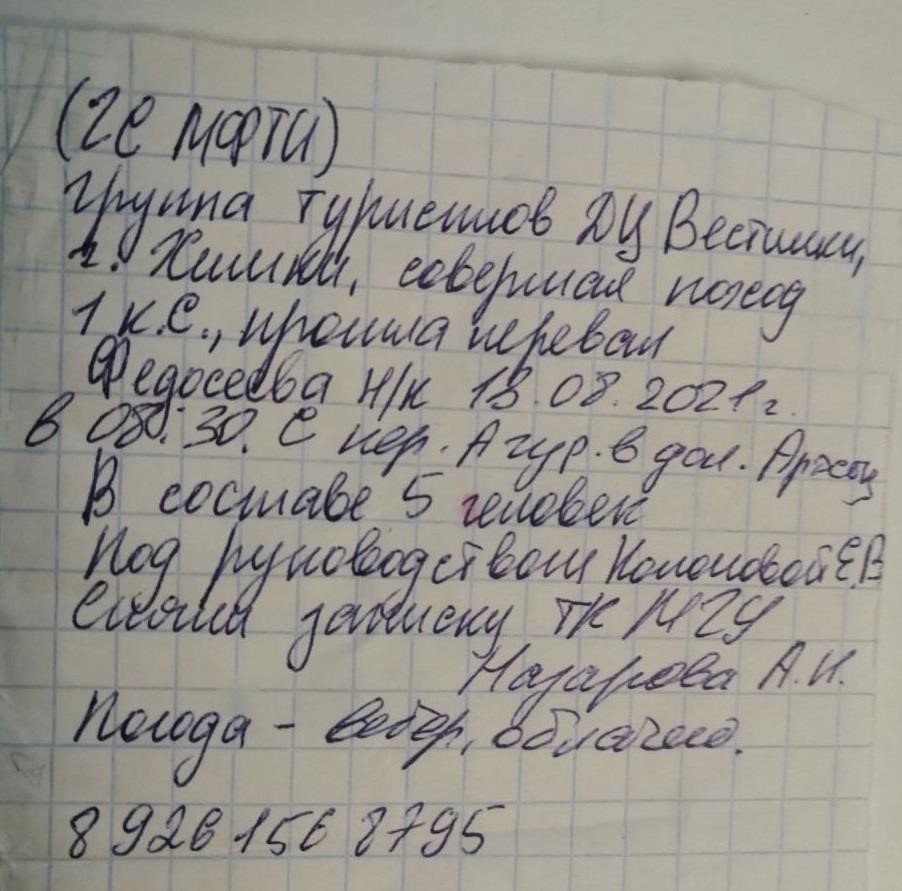 (ГС МФТИ)
Группа туристов ДЦ Вестники,
г. Химки, совершая поход
1 к.с., прошла перевал
Федосеева н/к 18.08.2021 г.
в 08:30. С пер. Агур. в дол. Архыз
В составе 5 человек
Под руководством Е.В
Сняли записку ТК МГУ
Назарова А.И.
Погода - ветер, облачно.
8 926 156 8795